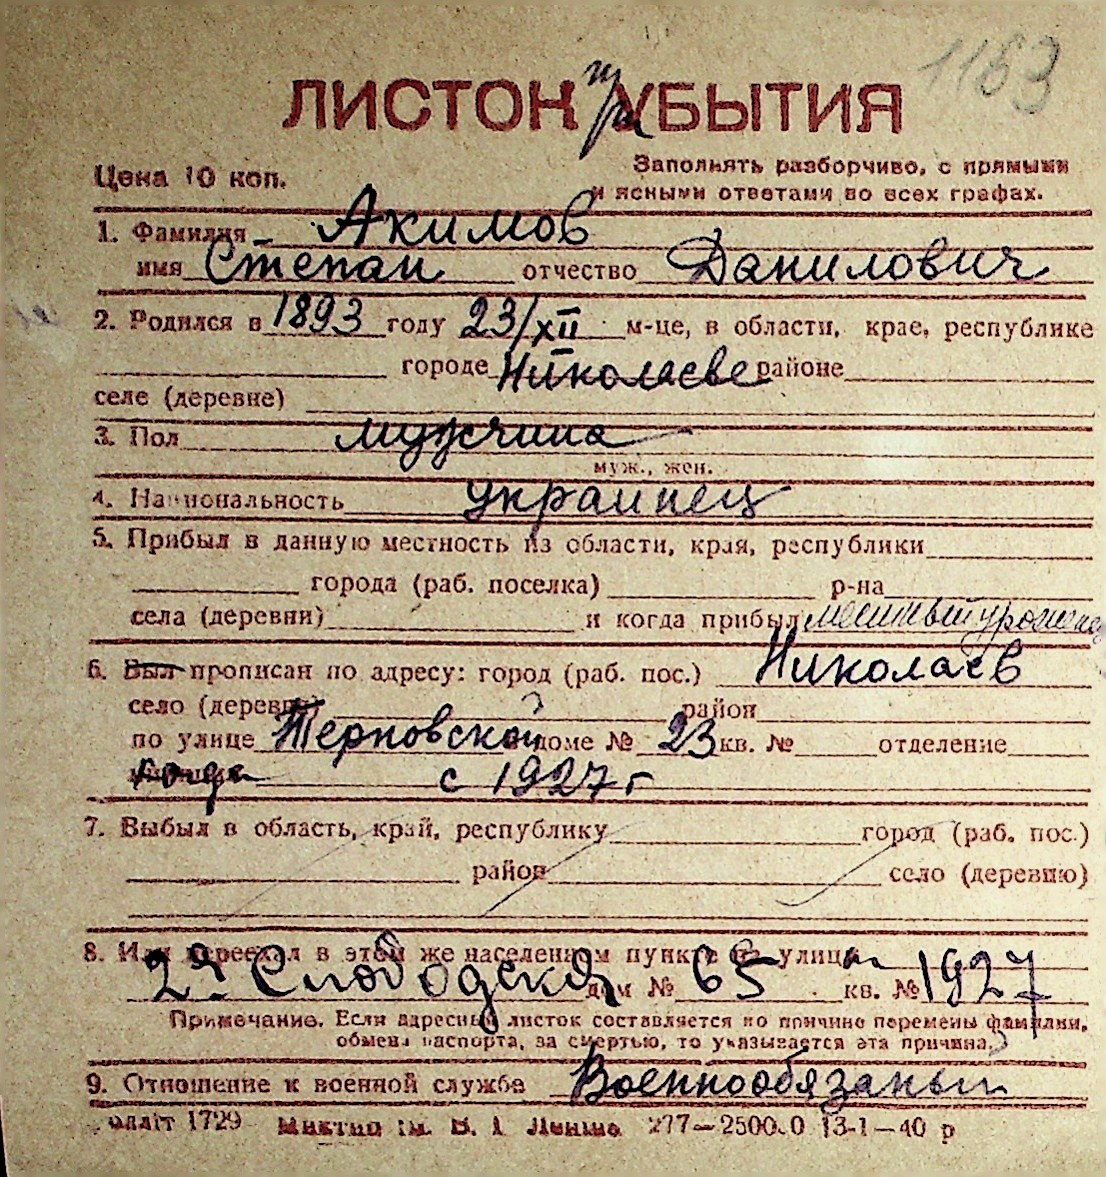 1163
ЛИСТОК при УБЫТИЯ
Цена 10 коп.
Заполнять разборчиво, с прямыми
и ясными ответами во всех графах.
1. Фамилия Акимов
имя Степан отчество Данилович
2. Родился в 1893 году 23/XII м-це, в области, крае, республике
городе Николаеве районе
селе (деревне)
3. Пол мужчина
муж., жен.
4. Национальность украинец
5. Прибыл в данную местность из области, края, республики
города (раб. поселка) р-на
села (деревни) и когда прибыл местный уроженец
6. Был прописан по адресу: город (раб. пос.) Николаев
село (деревня) район
по улице Терновской доме № 23 кв. № отделение
с 1927 г
7. Выбыл в область, край, республику город (раб. пос.)
район село (деревню)
8. Или переехал в этом же населенном пункте на улицу
2я Слободская дом № 65 кв. № 1927
Примечание. Если адресный листок составляется по причине перемены фамилии,
обмена паспорта, за смертью, то указывается эта причина.
9. Отношение к военной службе Военнообязаный
1729 277—2500.0 13-1—40 р